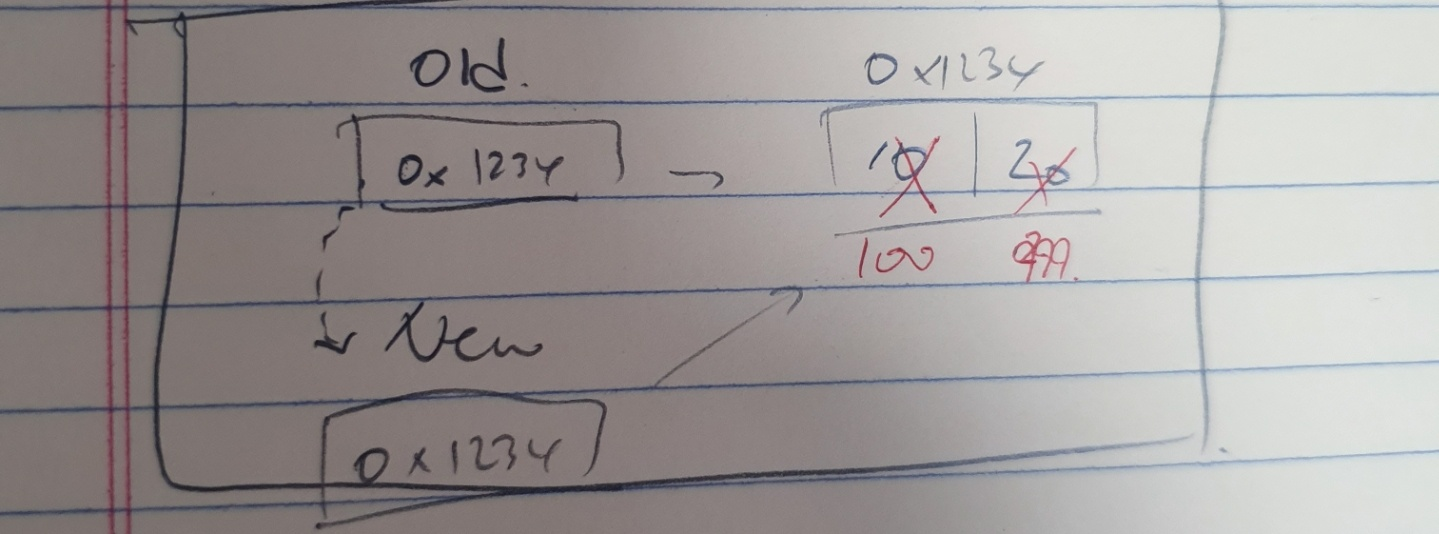 Old. 0x1234
0x1234 → 10 20
100 999.
New
0x1234